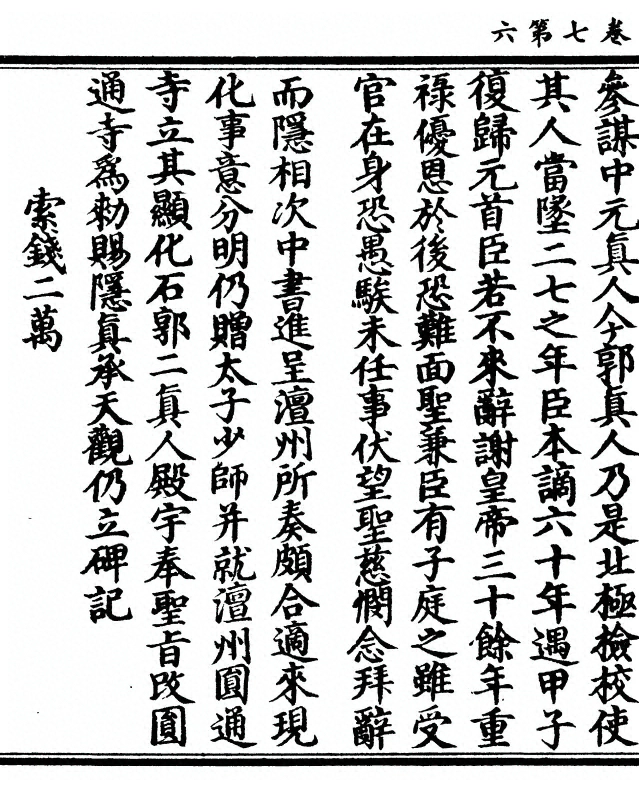 卷七第六
參謀中元真人今郭真人乃是北極檢校使
其人當墜二七之年臣本謫六十年遇甲子
復歸元首臣若不來辭謝皇帝三十餘年重
祿優恩於後恐難面聖兼臣有子庭之雖受
官在身恐愚騃未任事伏望聖慈憫念拜辭
而隱相次中書進呈澶州所奏頗合適來現
化事意分明仍贈太子少師并就澶州圓通
寺立其顯化石郭二真人殿宇奉聖旨改圓
通寺為勑賜隱真承天觀仍立碑記
索錢二萬